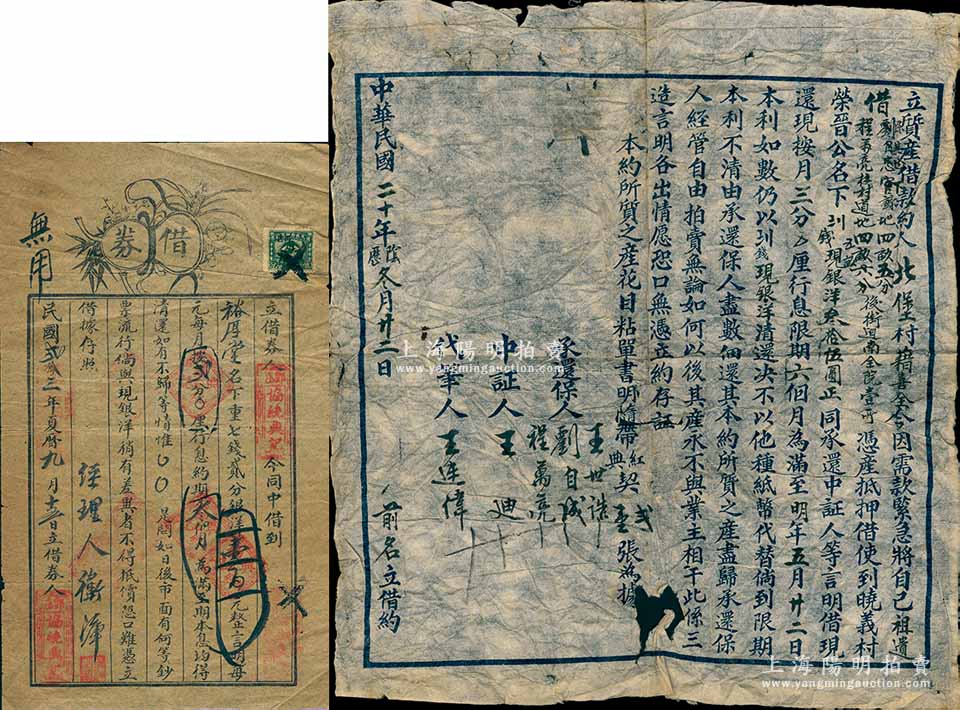 借券
無用
立借券人 今同中借到
裕厚堂名下重七錢貳分銀洋壹百元整言明每
元每月按貳分〇厘行息約期六個月為滿至期本息均得
清還如有不歸等情惟
是問如日後市面有何等鈔
票流行倘與現銀洋稍有差異者不得抵償恐口難憑立
借據存照
經理人
民國 三年夏曆九月 日立借券人
立質產借款約人北堡村籍喜全今因需款緊急將自己祖遺
程萬亮 村道地四畝六分 後街道南全院壹所
憑產抵押借使到曉義村
榮晉公名下到錢現銀洋叁拾伍圓正同承還中証人等言明借現
還現按月三分厘行息限期六個月為滿至明年五月廿二日
本利如數仍以到錢現銀洋清還決不以他種紙幣代替倘到限期
本利不清由承還保人盡數佃還其本約所質之產盡歸承還保
人經管自由拍賣無論如何以後其產永不與業主相干此係三
造言明各出情愿恐口無憑立約存証
本約所質之產花目粘單書明隨帶紅契 張為據
承還保人 王世 劉自成 程萬亮
中証人 王迪
代筆人 王連偉
中華民國二十年陰曆冬月廿二日 前名立借約
上海陽明拍賣
www.yangmingauction.com
上海陽明拍賣
www.yangmingauction.com